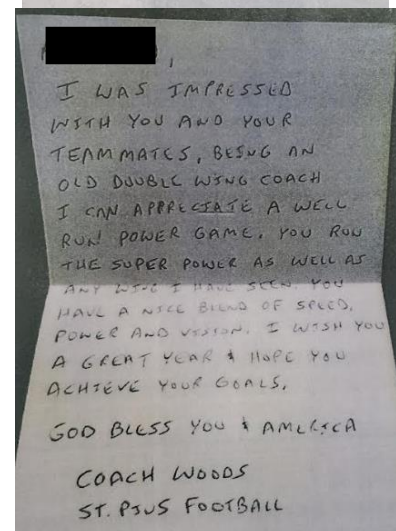 ,
I WAS IMPRESSED
WITH YOU AND YOUR
TEAMMATES, BEING AN
OLD DOUBLE WING COACH
I CAN APPRECIATE A WELL
RUN POWER GAME. YOU RUN
THE SUPER POWER AS WELL AS
ANY WING I HAVE SEEN. YOU
HAVE A NICE BLEND OF SPEED,
POWER AND VISION. I WISH YOU
A GREAT YEAR & HOPE YOU
ACHIEVE YOUR GOALS.
GOD BLESS YOU & AMERICA
COACH WOODS
ST. PIUS FOOTBALL